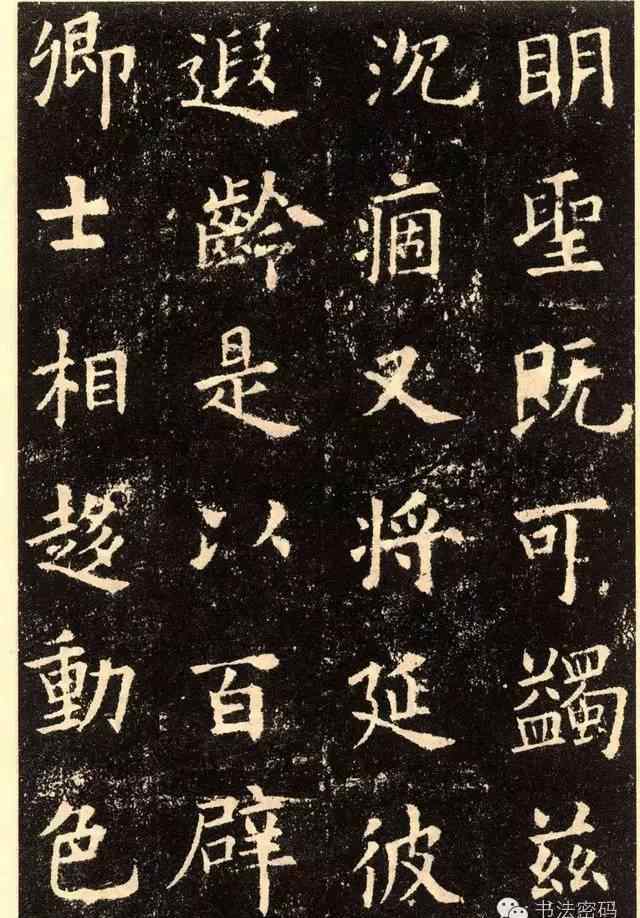 明聖既可蠲兹
沉痼又将延彼
遐齡是以百辟
卿士相趍動色
书法密码